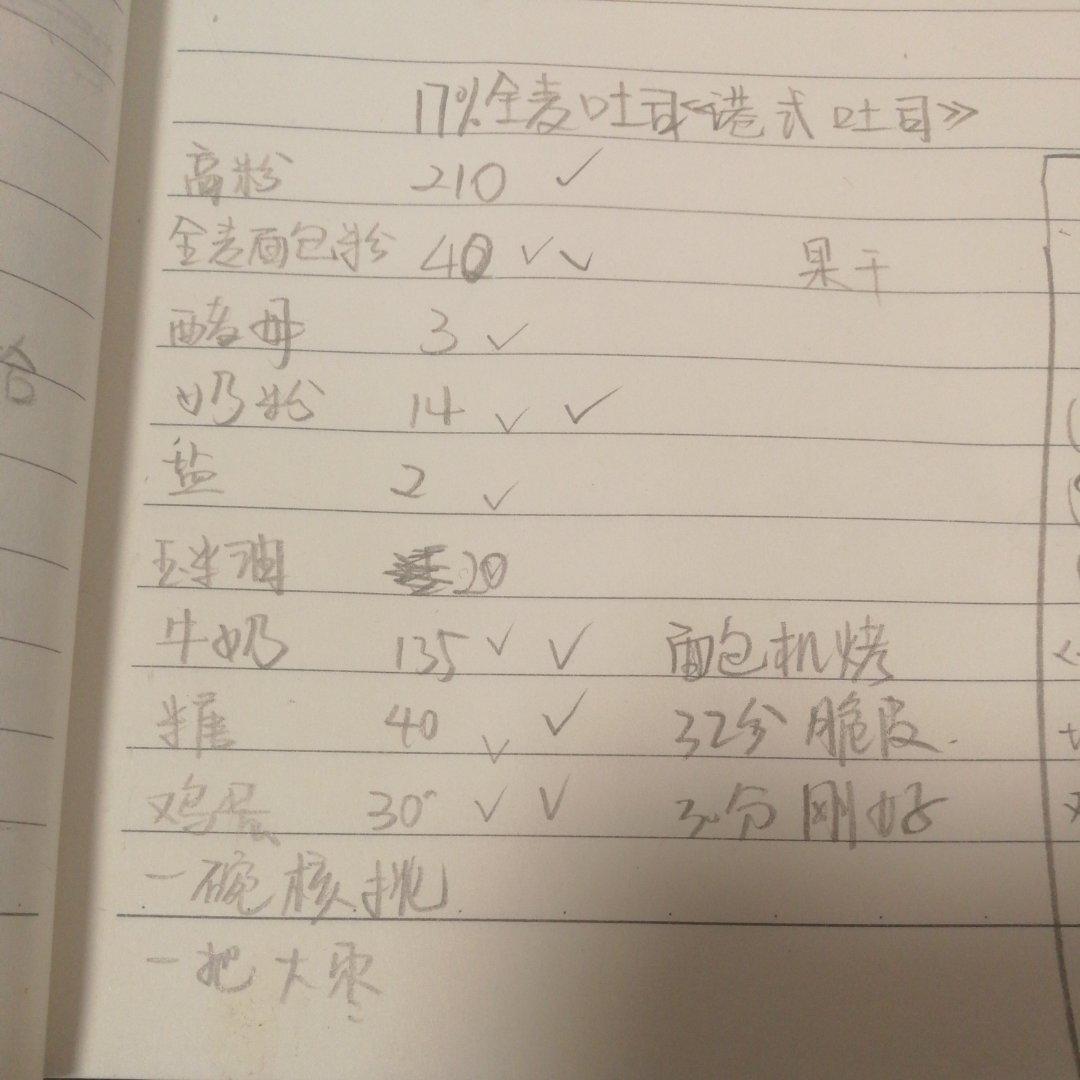 17%全麦吐司《港式吐司》
高粉 210 ✓
全麦面包粉 40 ✓✓ 果干
酵母 3 ✓
奶粉 14 ✓ ✓
盐 2 ✓
玉米油 20
牛奶 135 ✓ ✓ 面包机烤
糖 40 ✓ ✓ 32分 脆皮.
鸡蛋 30 ✓ ✓ 30分 刚好
一碗核挑
一把大枣